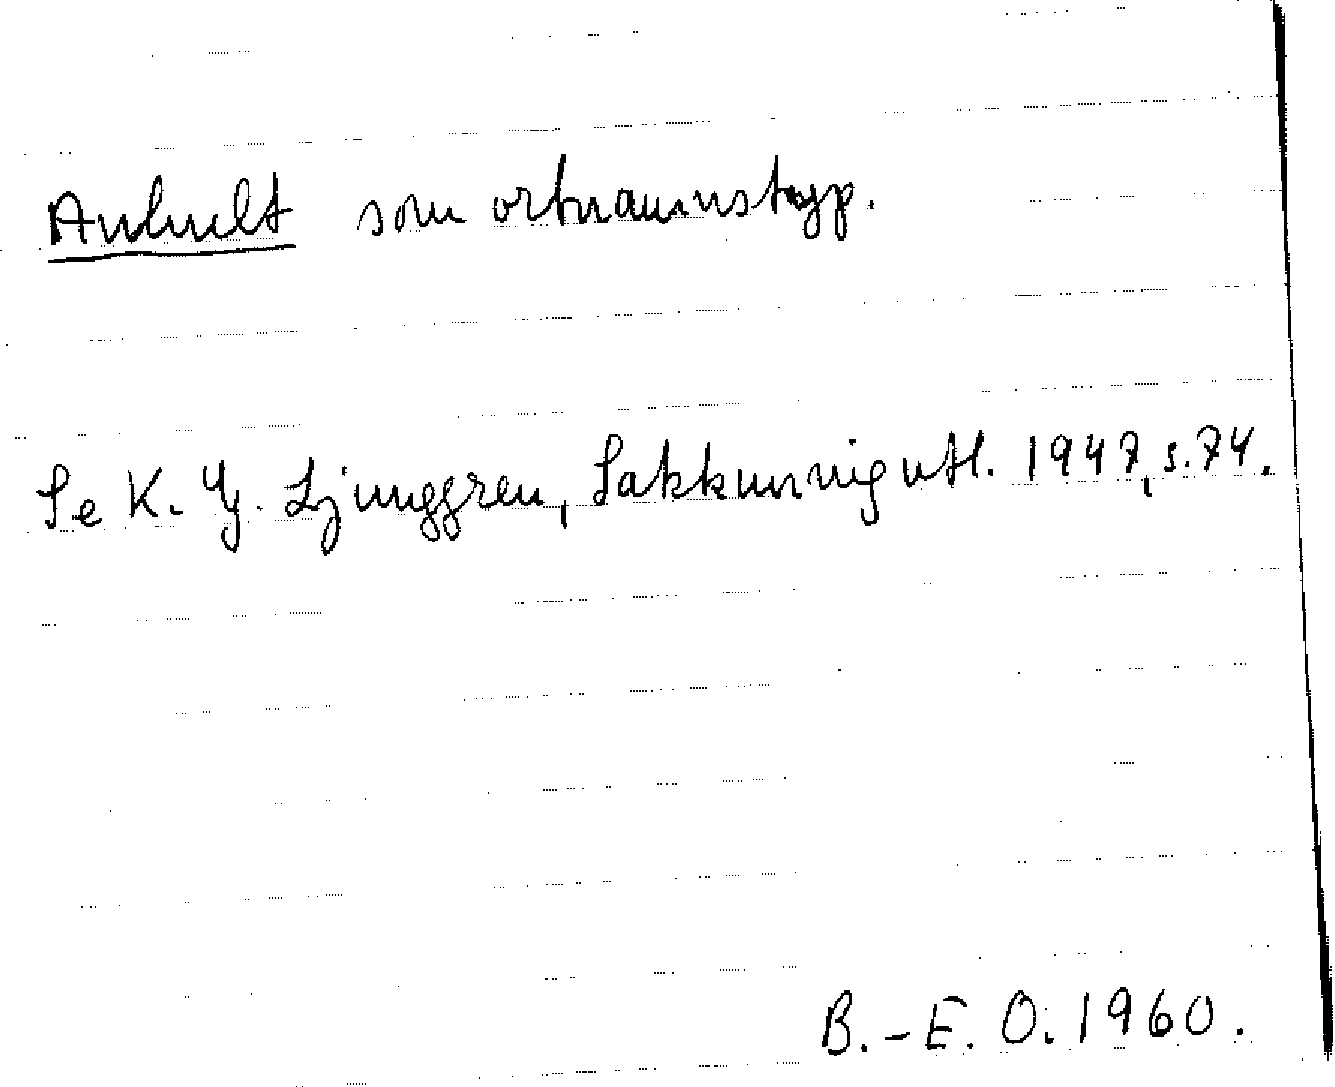 Anhult som ortnamnstyp.
Se K. G. Ljunggren, Sakkunnigutl. 1947, s. 74.
B.-E. O. 1960.